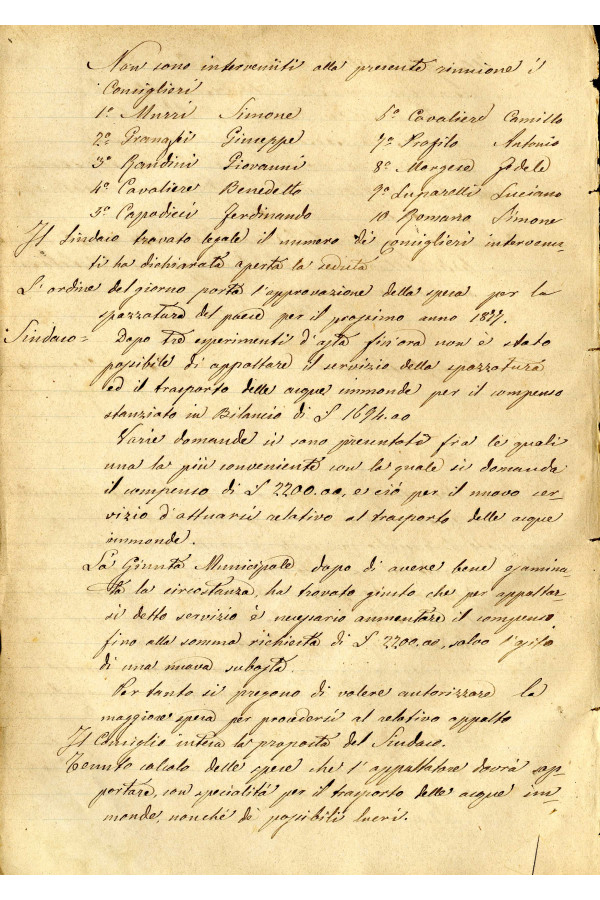 Non sono intervenuti alla presente riunione i
Consiglieri
1º Muzzi Simone 6º Cavaliere Camillo
2º Granassi Giuseppe 7º Profilo Antonio
3º Bandini Giovanni 8º Morgese Fedele
4º Cavaliere Benedetto 9º Luparelli Luciano
5º Capodieci Ferdinando 10 Romano Simone
Il Sindaco trovato legale il numero di consiglieri intervenu-
ti ha dichiarata aperta la seduta
L'ordine del giorno porta l'approvazione della spesa per la
spazzatura del paese per il prossimo anno 1877.
Sindaco = Dopo tre esperimenti d'asta fin'ora non è stato
possibile di appaltare il servizio della spazzatura
ed il trasporto delle acque immonde per il compenso
stanziato in Bilancio di £ 1694.00
Varie domande si sono presentate fra le quali
una la più conveniente con la quale si domanda
il compenso di £ 2200.00, e ciò per il nuovo ser-
vizio d'attuarsi relativo al trasporto delle acque
immonde.
La Giunta Municipale dopo di avere bene esamina-
ta la circostanza, ha trovato giusto che per appaltar-
si detto servizio è necessario aumentare il compenso
fino alla somma richiesta di £ 2200.00, salvo l'esito
di una nuova subasta.
Per tanto si pregono di volere autorizzare la
maggiore spesa per procedersi al relativo appalto
Il Consiglio intesa la proposta del Sindaco.
Tenuto calcolo delle spese che l'appaltatore dovrà sop-
portare, con specialità per il trasporto delle acque im-
monde, nonché de' possibili lucri.